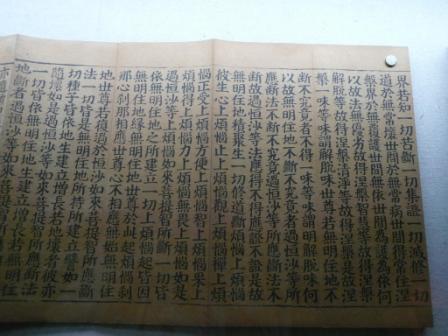 界皆知一切苦斷一切集證一切滅修一切
道於無常壞世間無常病世間得常住涅
槃界於無覆護世間無依世間為護為依何
以故法無優劣故得涅槃智慧等故得涅槃
解脫等故得涅槃清淨等故得涅槃是故涅
槃一味等味謂解脫味世尊若無明住地不
斷不究竟者不得一味等味謂明解脫味何
以故無明住地不斷不究竟者過恒沙等所
應斷法不斷不究竟過恒沙等所應斷法不
斷故過恒沙等法應得不得應證不證是故
無明住地積聚生一切修道斷煩惱上煩惱
彼生心上煩惱止上煩惱觀上煩惱禪上煩
惱正受上煩惱方便上煩惱智上煩惱果上
煩惱得上煩惱力上煩惱無畏上煩惱如是
過恒沙等上煩惱如來菩提智所斷一切皆
依無明住地之所建立一切上煩惱起皆因
無明住地緣無明住地世尊於此起煩惱剎
那心剎那相應世尊心不相應無始無明住
地世尊若復過於恒沙如來菩提智所應斷
法一切皆是無明住地所持所建立譬如一
切種子皆依地生建立增長若地壞者彼亦
隨壞如是過恒沙等如來菩提智所應斷法
一切皆依無明住地生建立增長若無明住
地斷者過恒沙等如來菩提智所應斷法皆
亦隨